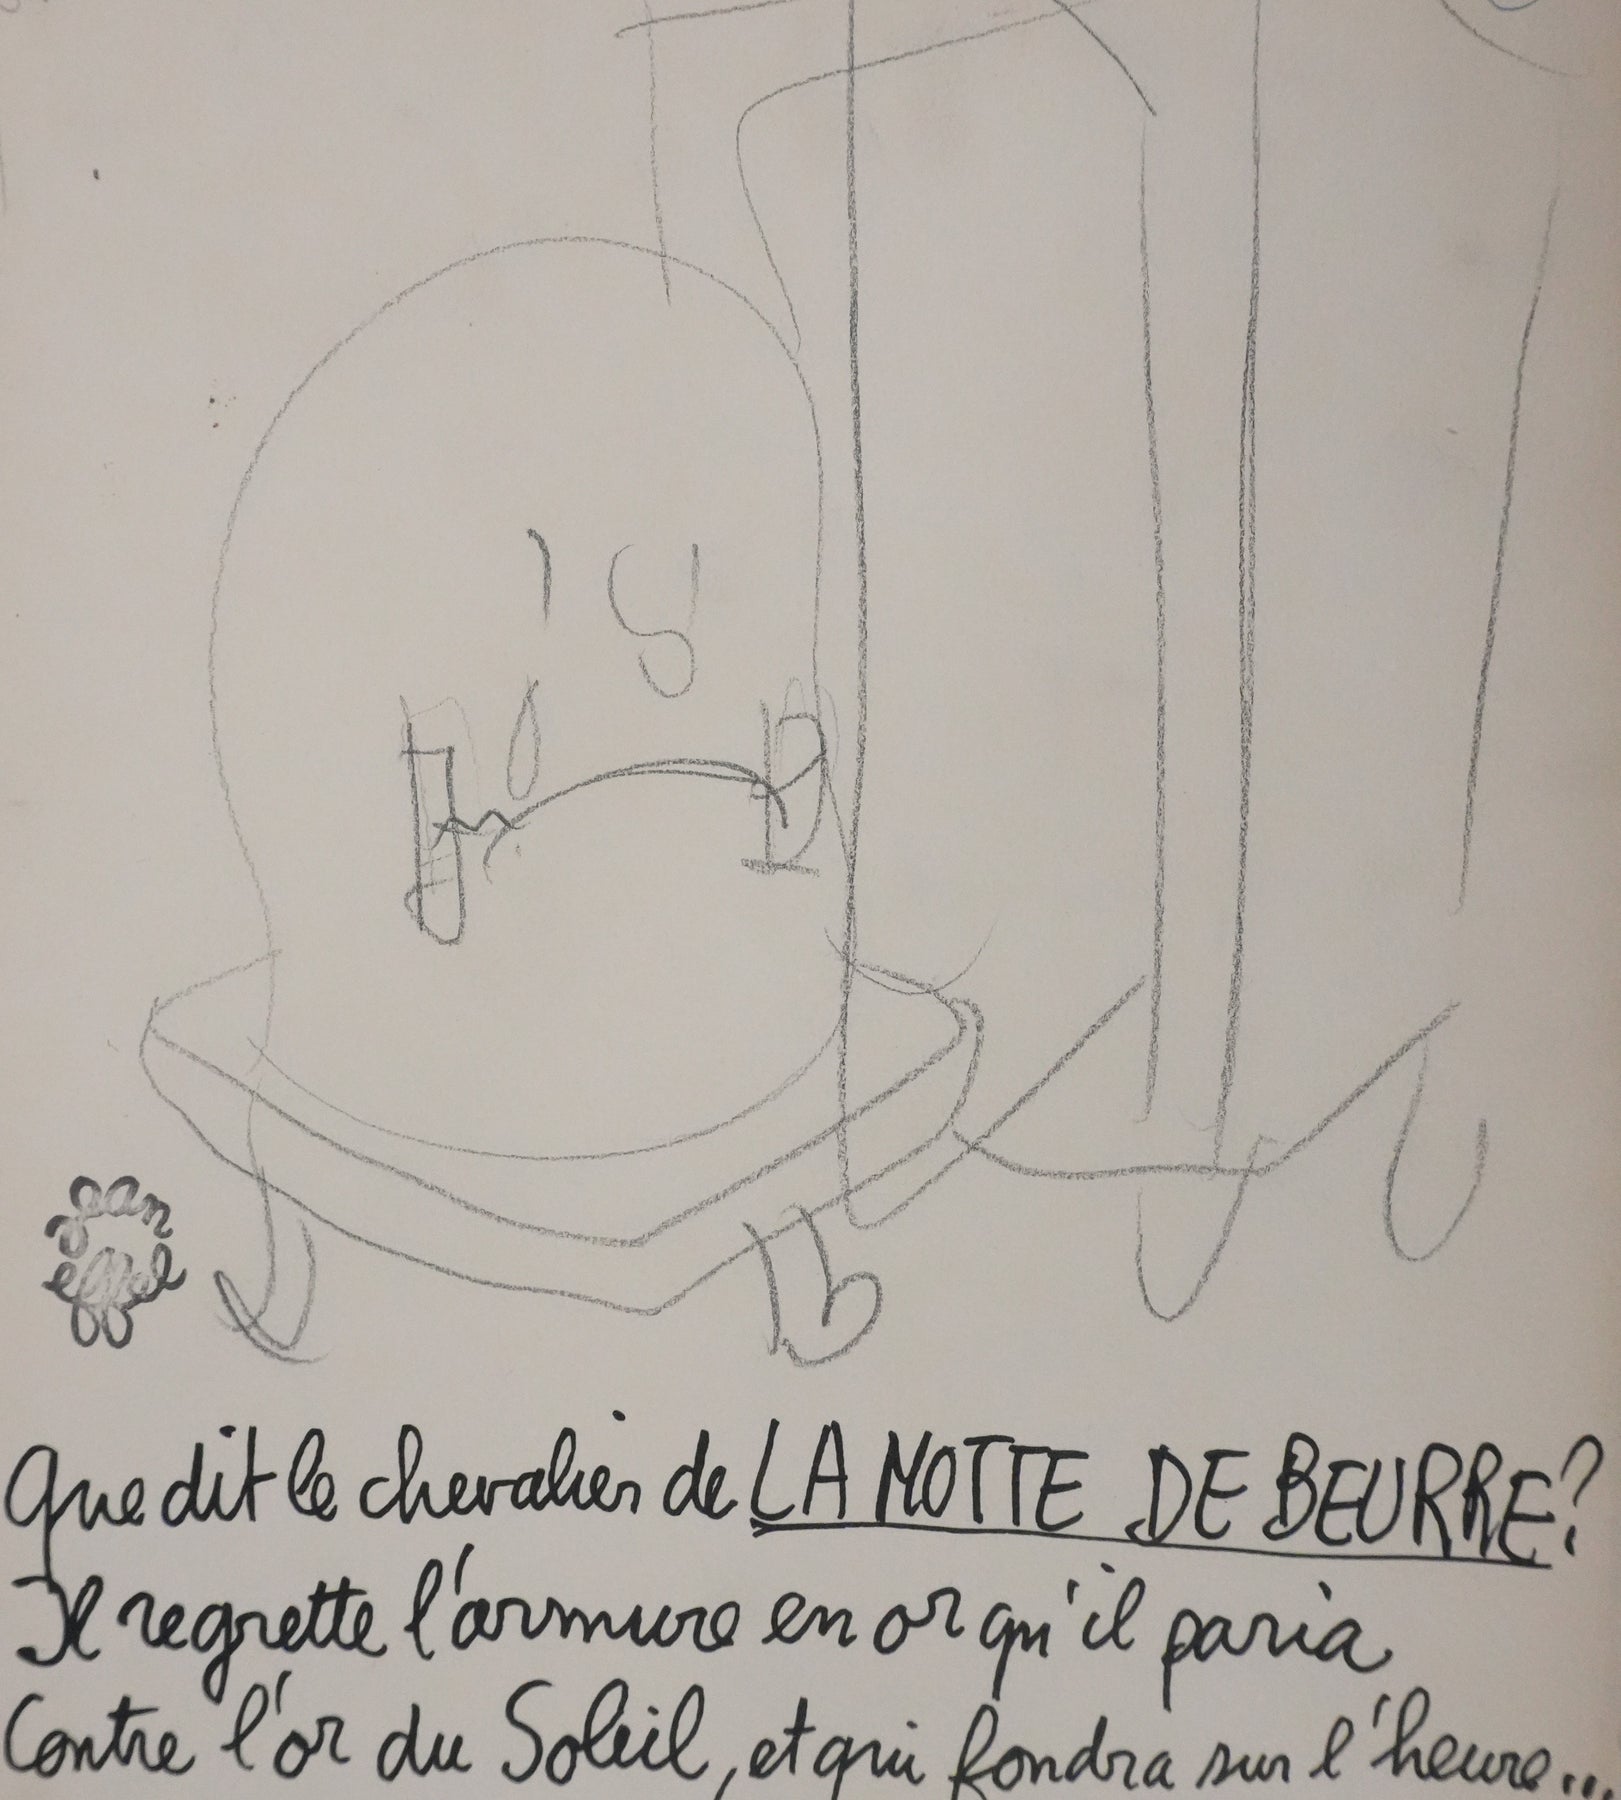 jean
effel
Que dit le chevalier de LA MOTTE DE BEURRE?
Il regrette l'armure en or qu'il paria
Contre l'or du Soleil, et qui fondra sur l'heure...